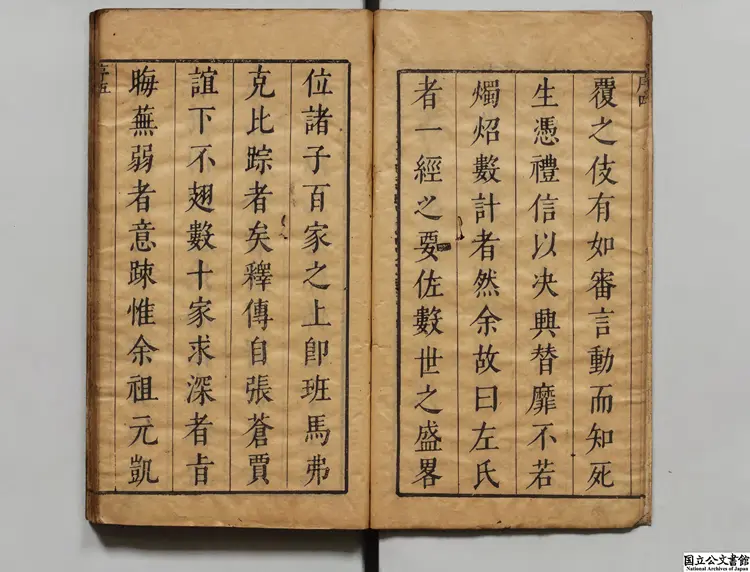 序四
覆之伎有如審言動而知死
生憑禮信以决興替靡不若
燭炤數計者然余故曰左氏
者一經之要佐數世之盛畧
位諸子百家之上卽班馬弗
克比踪者矣釋傳自張蒼賈
誼下不翅數十家求深者㫖
晦蕪弱者意踈惟余祖元凱
序五
国立公文書館
National Archives of Japan